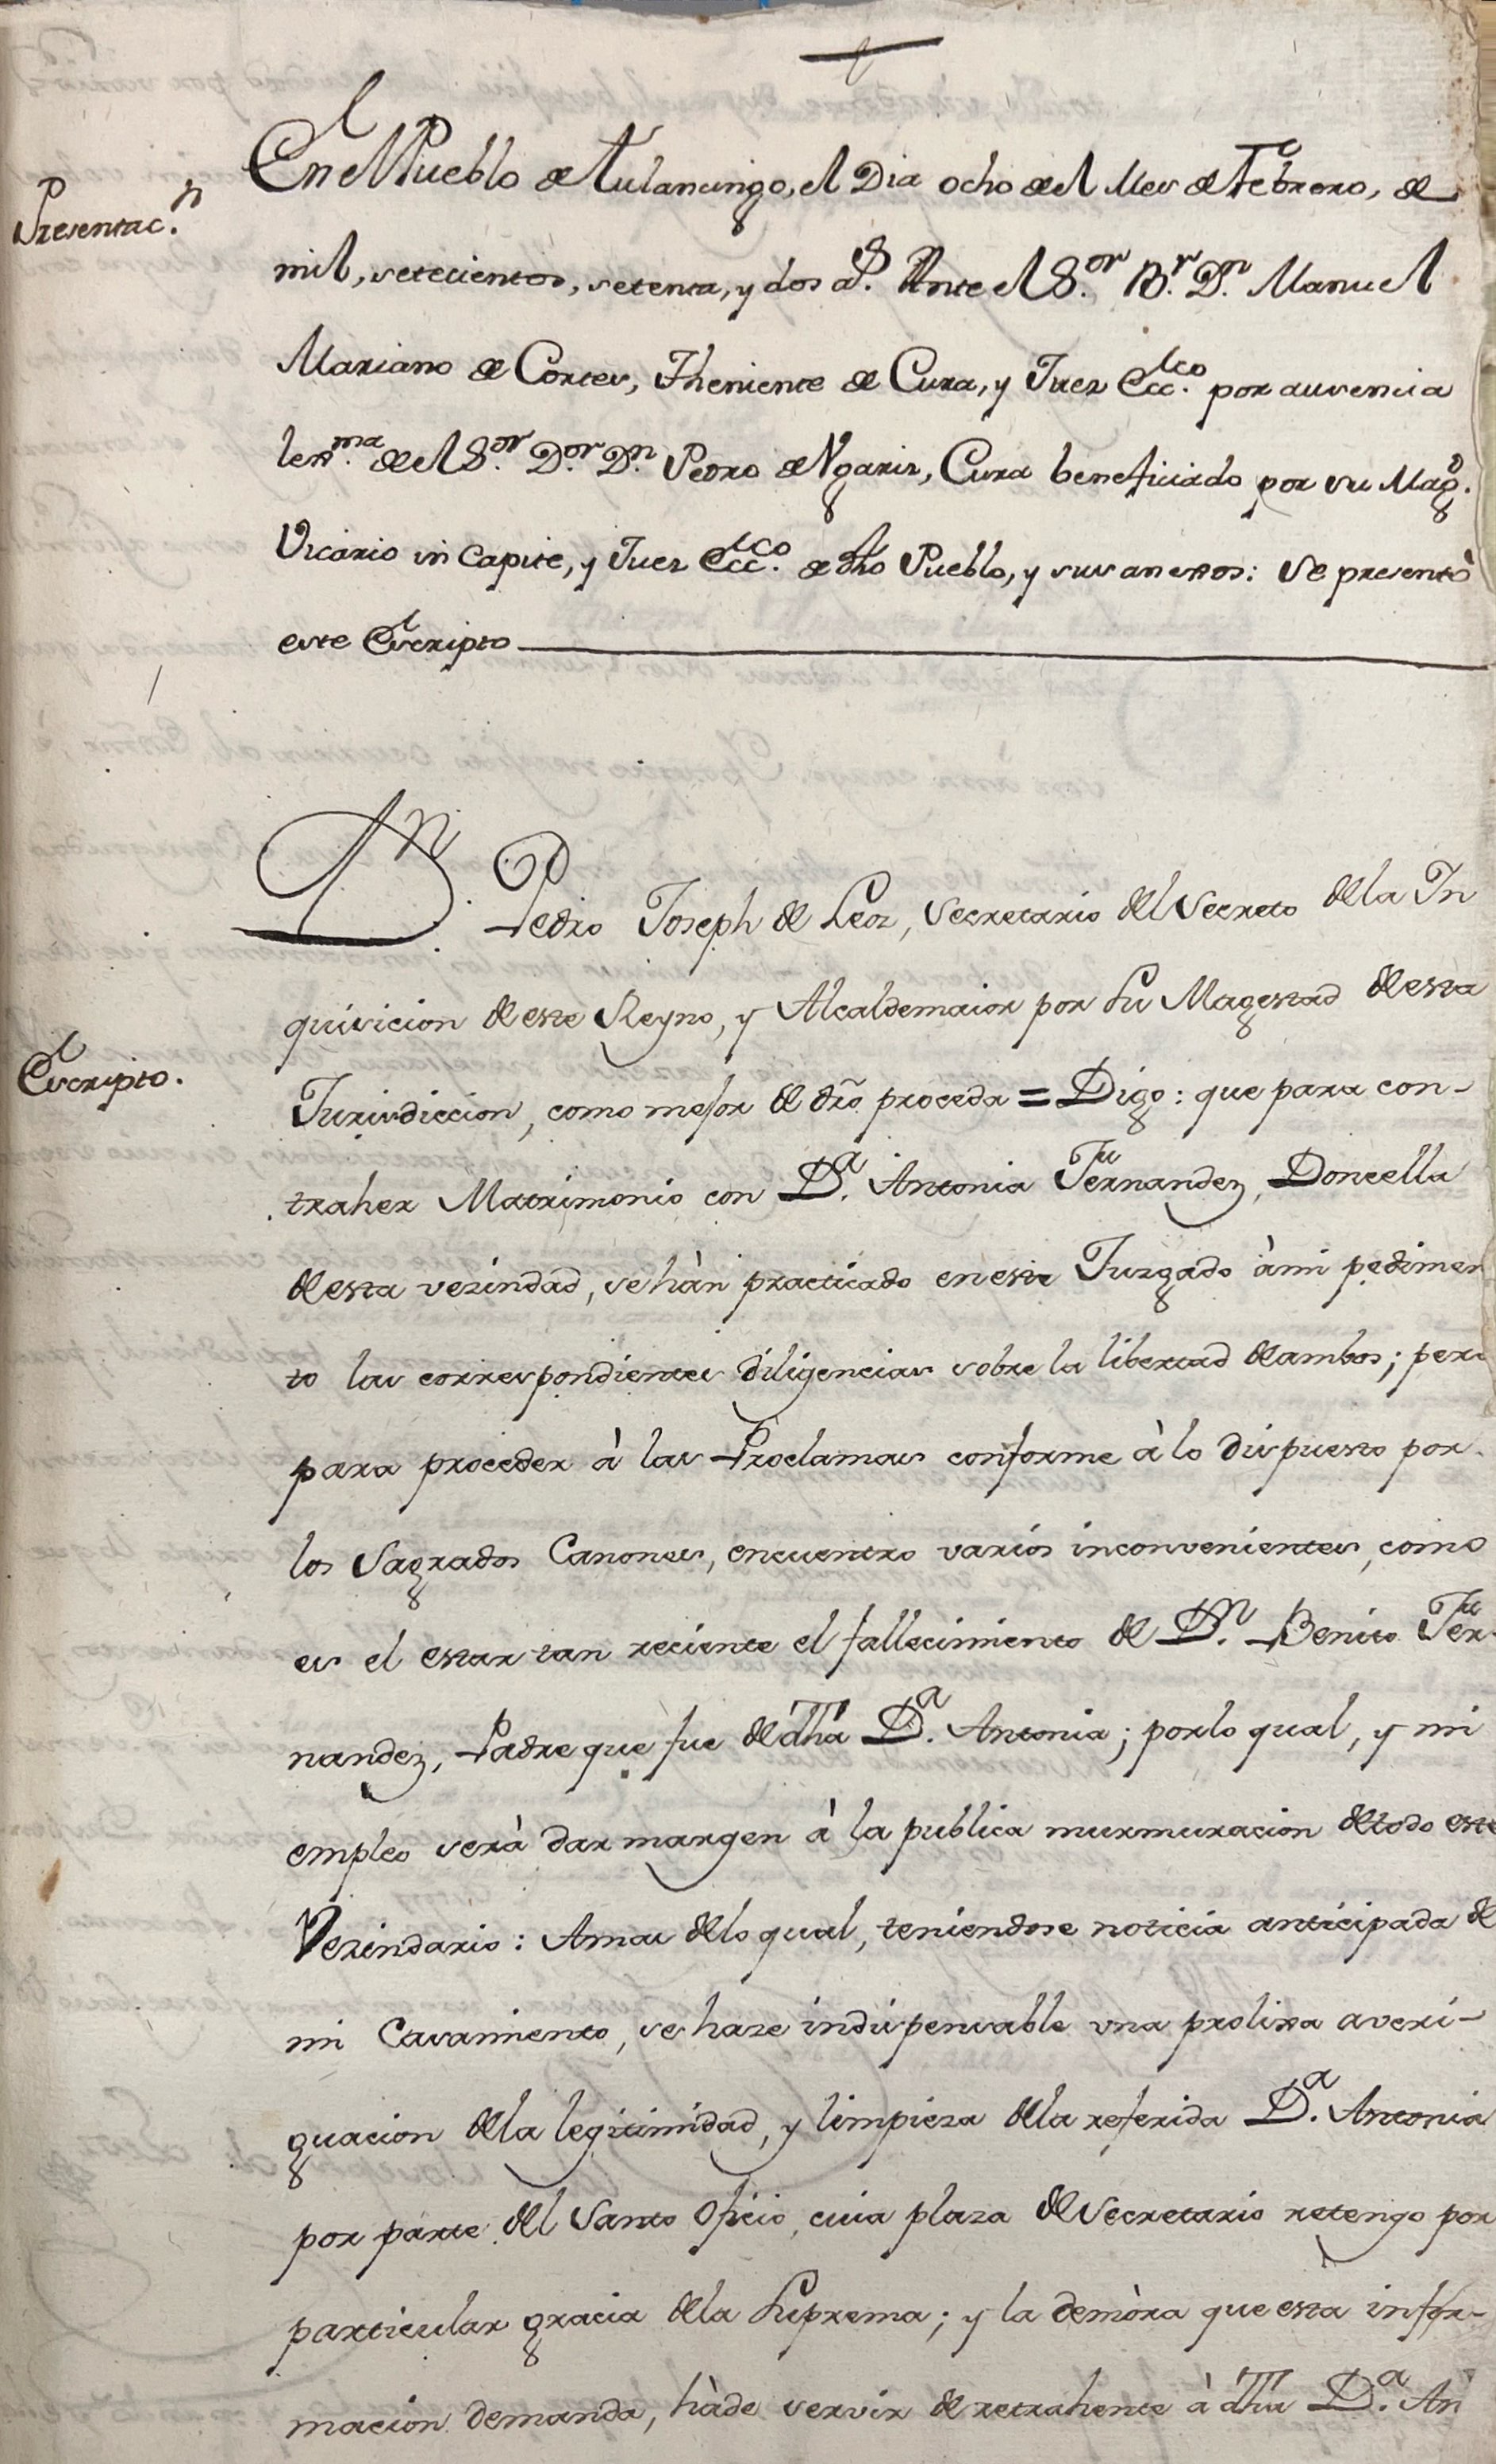 Presentac.n
En el Pueblo de Tulancingo, el Dia ocho de el Mes de Febrero, de
mil, setecientos, setenta, y dos a.s Ante el S.or B.r D.n Manuel
Mariano de Cortes, Theniente de Cura, y Juez Ecc.co por ausencia
lexm.ma de el S.or D.or D.n Pedro de Ygariz, Cura beneficiado por su Mag.d
Vicario in Capite, y Juez Ecc.co de dho Pueblo, y sus anexos: Se presentò
este Escripto
Escripto.
D.n Pedro Joseph de Leoz, Secretario del Secreto de la In
quisicion de este Reyno, y Alcaldemaior por Su Magestad de esta
Jurisdiccion, como mejor de dro proceda = Digo: que para con-
traher Matrimonio con D.a Antonia Fernandez, Doncella
de esta vezindad, se hàn practicado en este Juzgado à mi pedimen
to las correspondientes diligencias sobre la libertad de ambos; pero
para proceder à las Proclamas conforme à lo dispuesto por
los Sagrados Canones, encuentro varios inconvenientes, como
es el estar tan reciente el fallecimiento de D.n Benito Fer
nandez, Padre que fue de dha D.a Antonia; por lo qual, y mi
empleo serà dar margen à la publica murmuracion de todo este
Vezindario: Amas de lo qual, teniendose noticia anticipada de
mi Casamiento, se haze indispensable una prolixa averi-
guacion de la legitimidad, y limpieza de la referida D.a Antonia
por parte del Santo Oficio, cuia plaza de Secretario retengo por
particular gracia de la Suprema; y la demòra que esta infor-
macion demanda, hàde servir de retrahente à dha D.a An